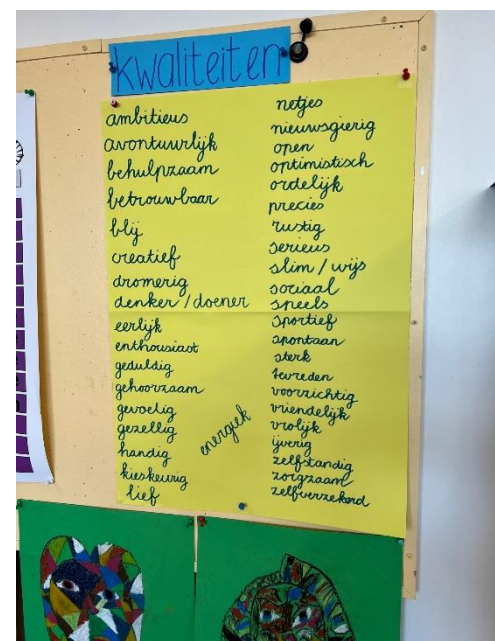 kwaliteiten
ambitieus
avontuurlijk
behulpzaam
betrouwbaar
blij
creatief
dromerig
denker / doener
eerlijk
enthousiast
geduldig
gehoorzaam
gevoelig
gezellig
handig
kieskeurig
lief
energiek
netjes
nieuwsgierig
open
optimistisch
ordelijk
precies
rustig
serieus
slim / wijs
sociaal
speels
sportief
spontaan
sterk
tevreden
voorzichtig
vriendelijk
vrolijk
ijverig
zelfstandig
zorgzaam
zelfverzekerd